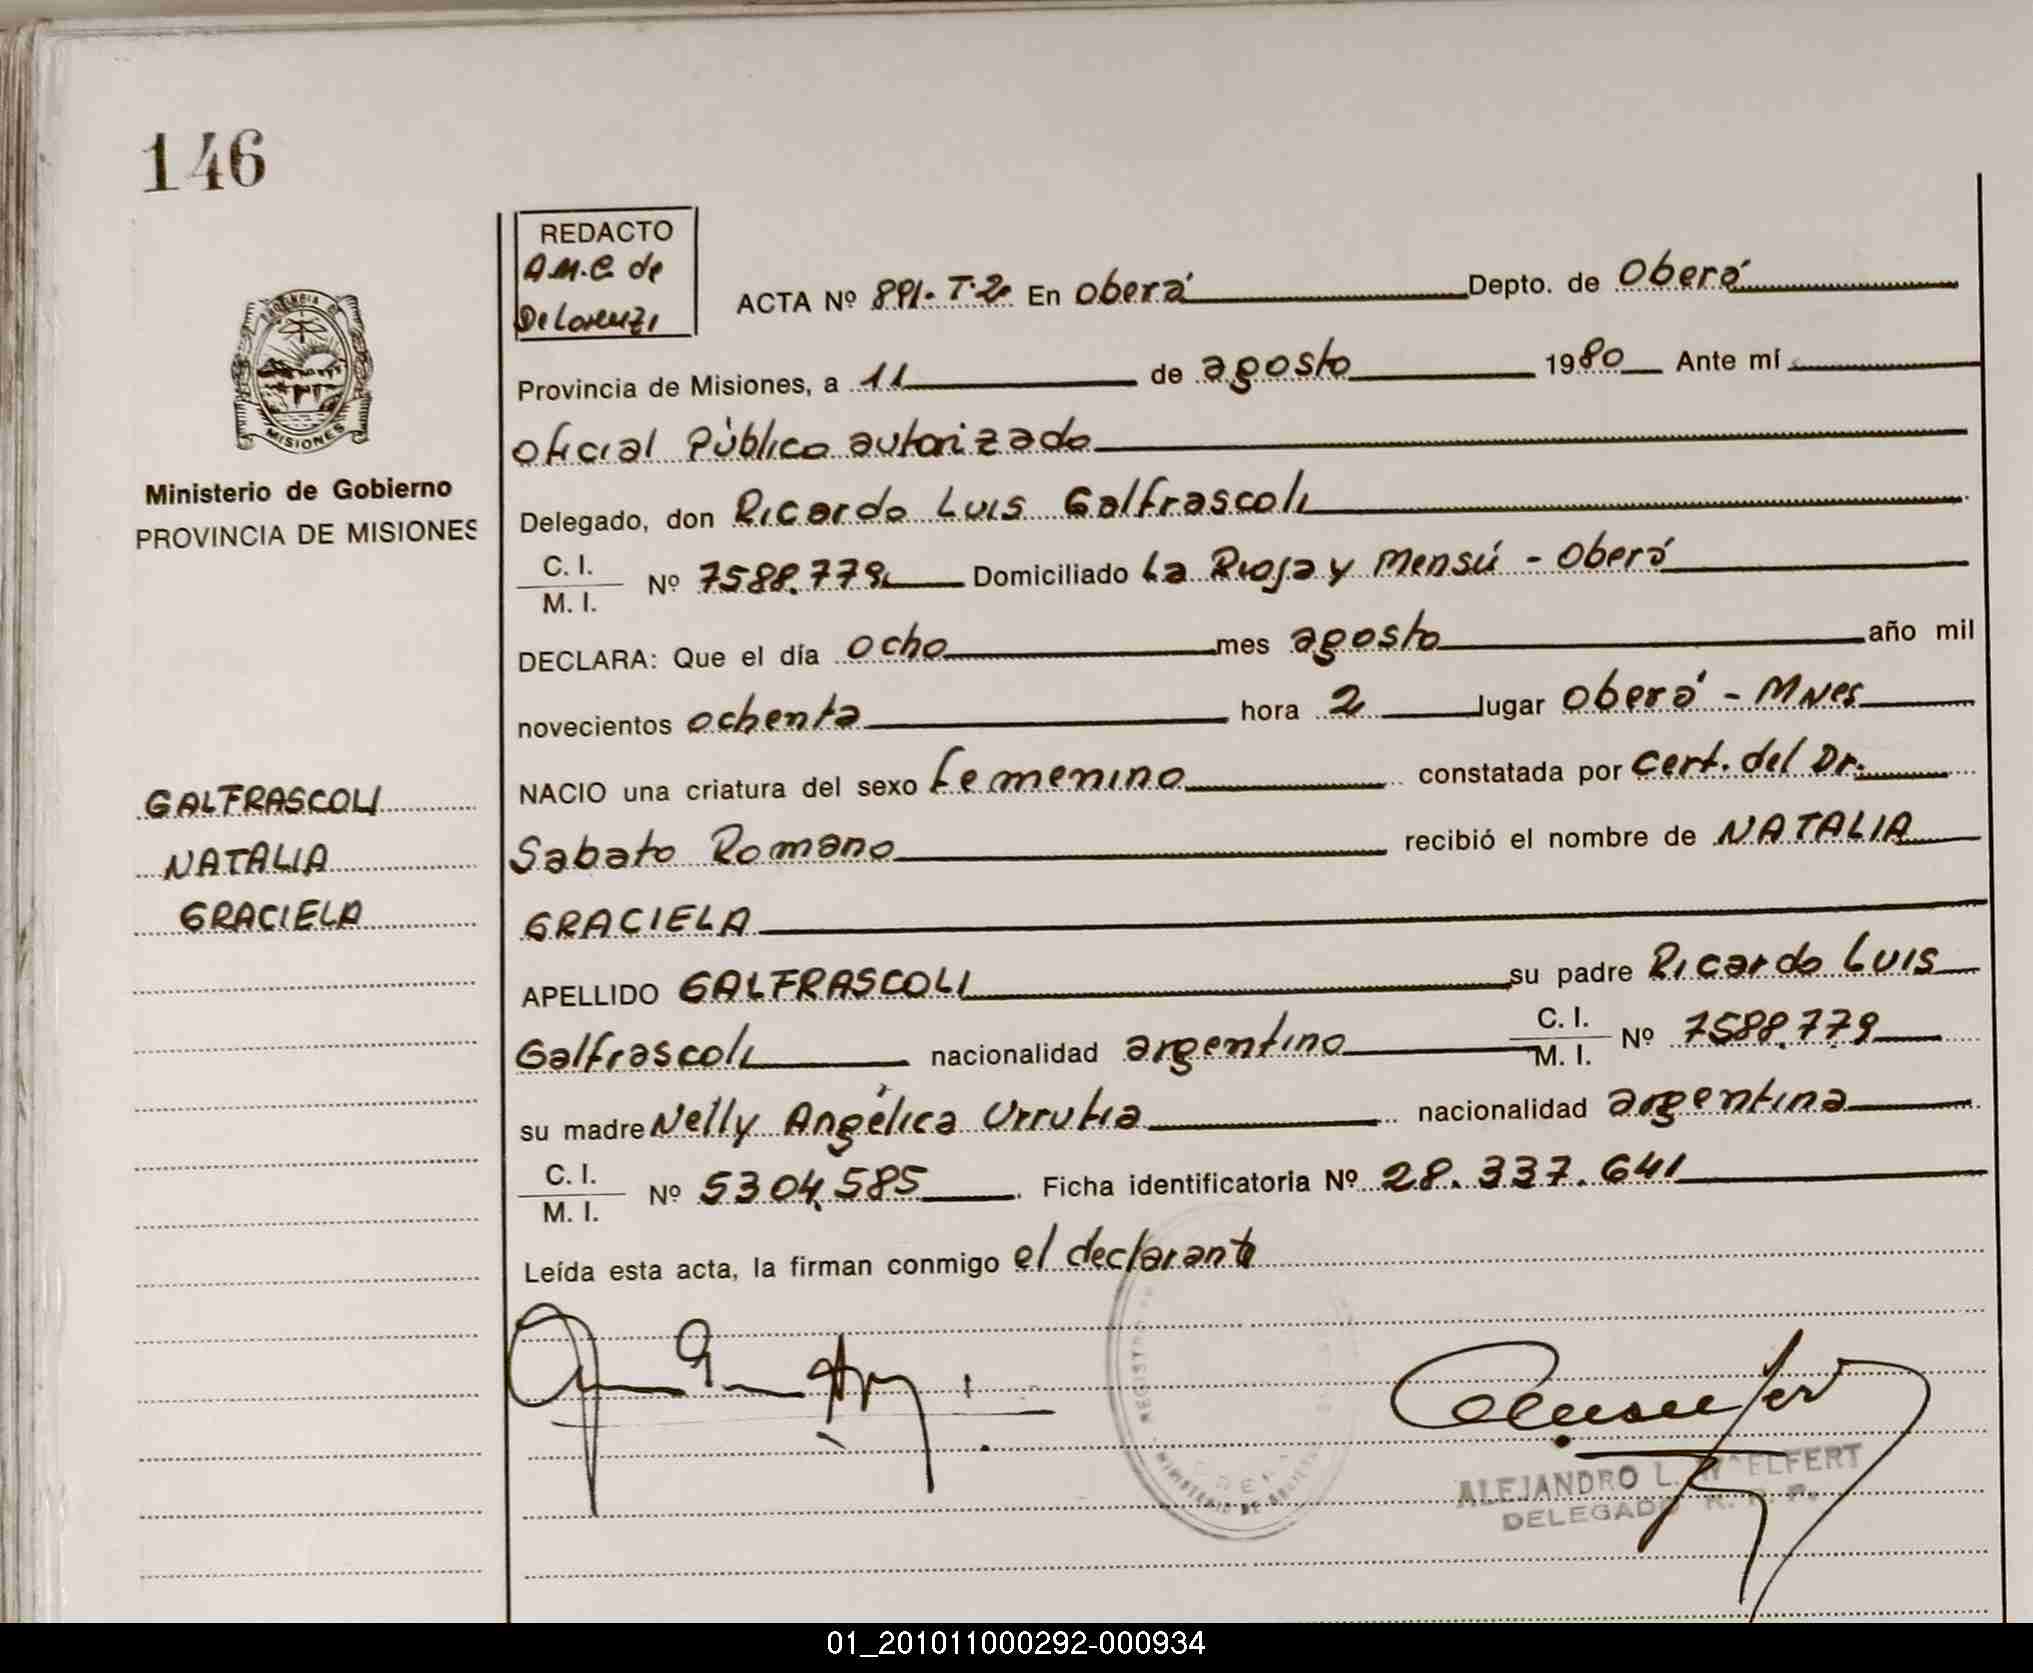 146
REDACTO
A.M.C. de
De Lorenzi
ACTA Nº 891-T-2 En Oberá Depto. de Oberá
Provincia de Misiones, a 11 de agosto 1980 Ante mí
Oficial Público autorizado
Delegado, don Ricardo Luis Galfrascoli
C. I.
M. I. Nº 7588.779 Domiciliado La Rioja y Mensú - Oberá
DECLARA: Que el día ocho mes agosto año mil
novecientos ochenta hora 2 lugar Oberá - Mnes
NACIO una criatura del sexo femenino constatada por Cert. del Dr.
Sabato Romano recibió el nombre de NATALIA
GRACIELA
APELLIDO GALFRASCOLI su padre Ricardo Luis
Galfrascoli nacionalidad argentino C. I.
M. I. Nº 7588.779
su madre Nélly Angélica Urrutia nacionalidad argentina
C. I.
M. I. Nº 5304.585 Ficha identificatoria Nº 28.337.641
Leída esta acta, la firman conmigo el declarante
PROVINCIA DE
MISIONES
Ministerio de Gobierno
PROVINCIA DE MISIONES
GALFRASCOLI
NATALIA
GRACIELA
ALEJANDRO L. WELFERT
DELEGADO R. P.
01_201011000292-000934